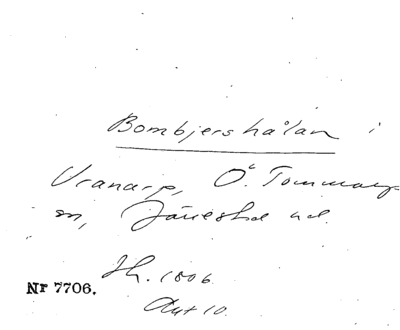 Bombjershålan i
Vranarp, Ö. Tommarp
sn, Järrestad hd.
Jh. 1806.
Nr 7706.
Akt 10.